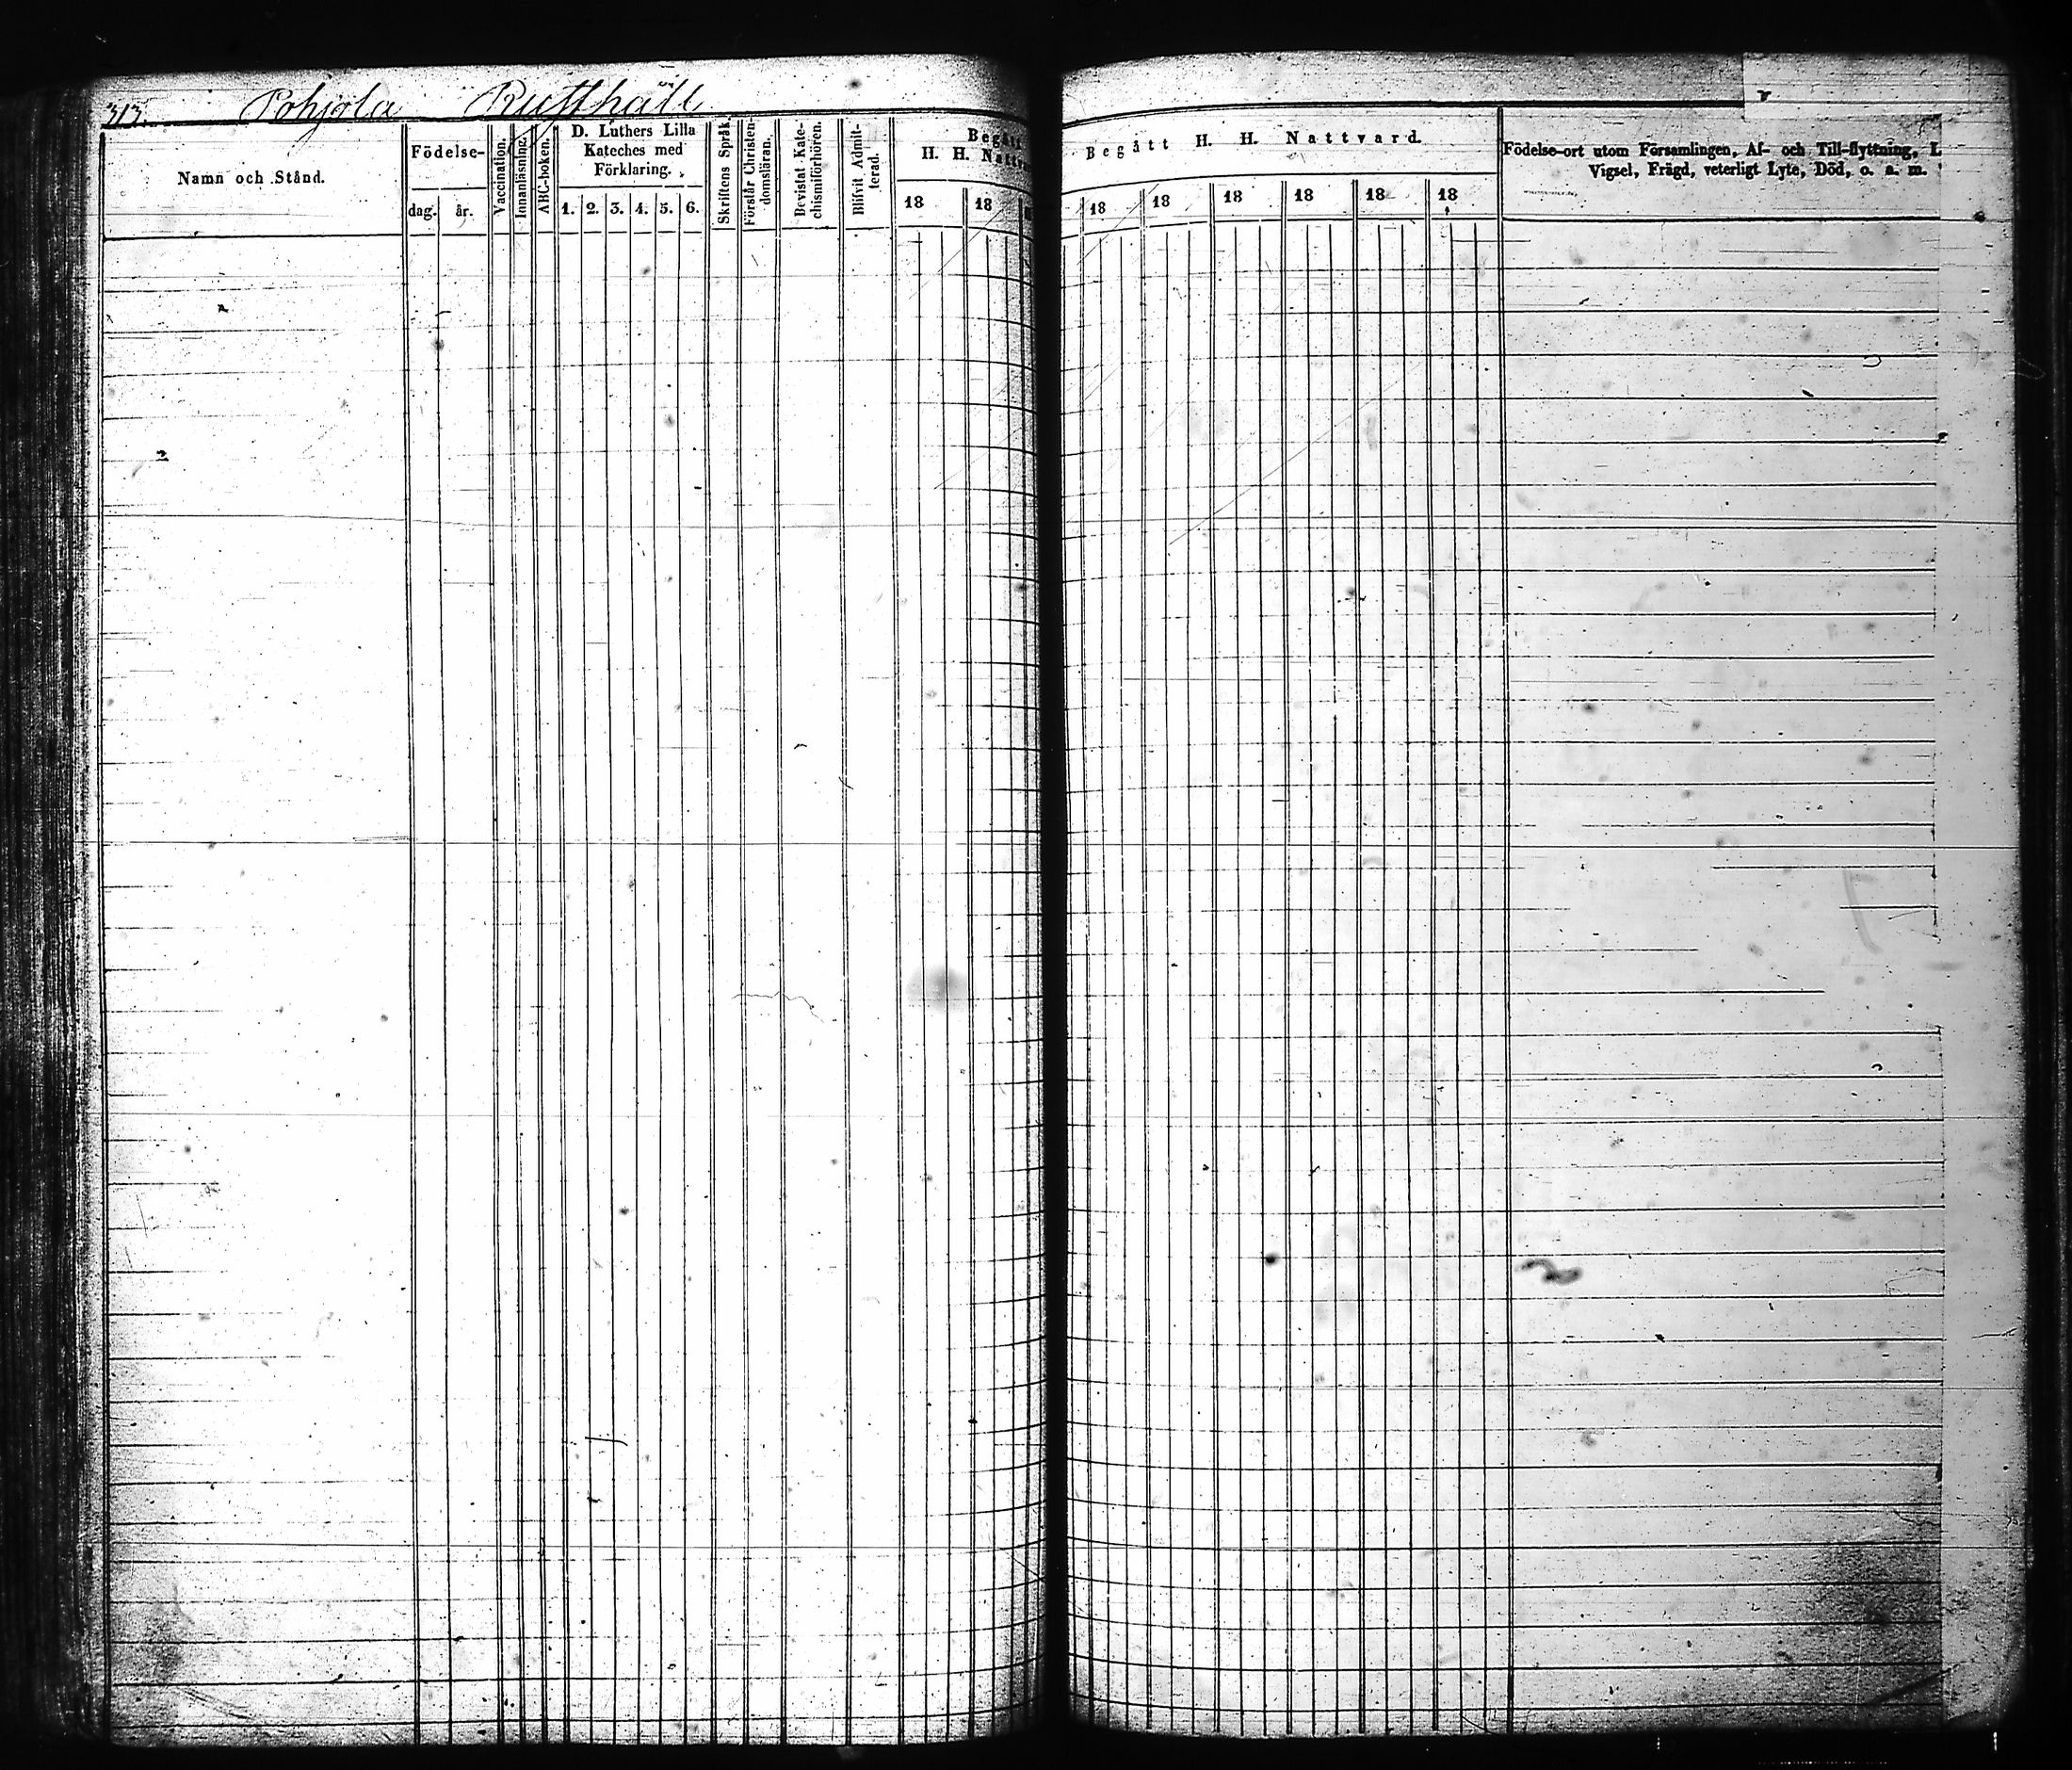 313. Pohjola Rusthåll
Namn och Stånd.
Födelse-
dag. år.
Vaccination.
Innanläsning.
ABC-boken.
D. Luthers Lilla
Kateches med
Förklaring.
1. 2. 3. 4. 5. 6.
Skriftens Språk.
Förstår Christen-
domsläran.
Bevistat Kate-
chismiförhören.
Blifvit Admit-
terad.
Begått
H. H. Nattv
18 18
Begått H. H. Nattvard.
18 18 18 18 18 18
Födelse-ort utom Församlingen, Af- och Till-flyttning, L
Vigsel, Frägd, veterligt Lyte, Död, o. a. m.